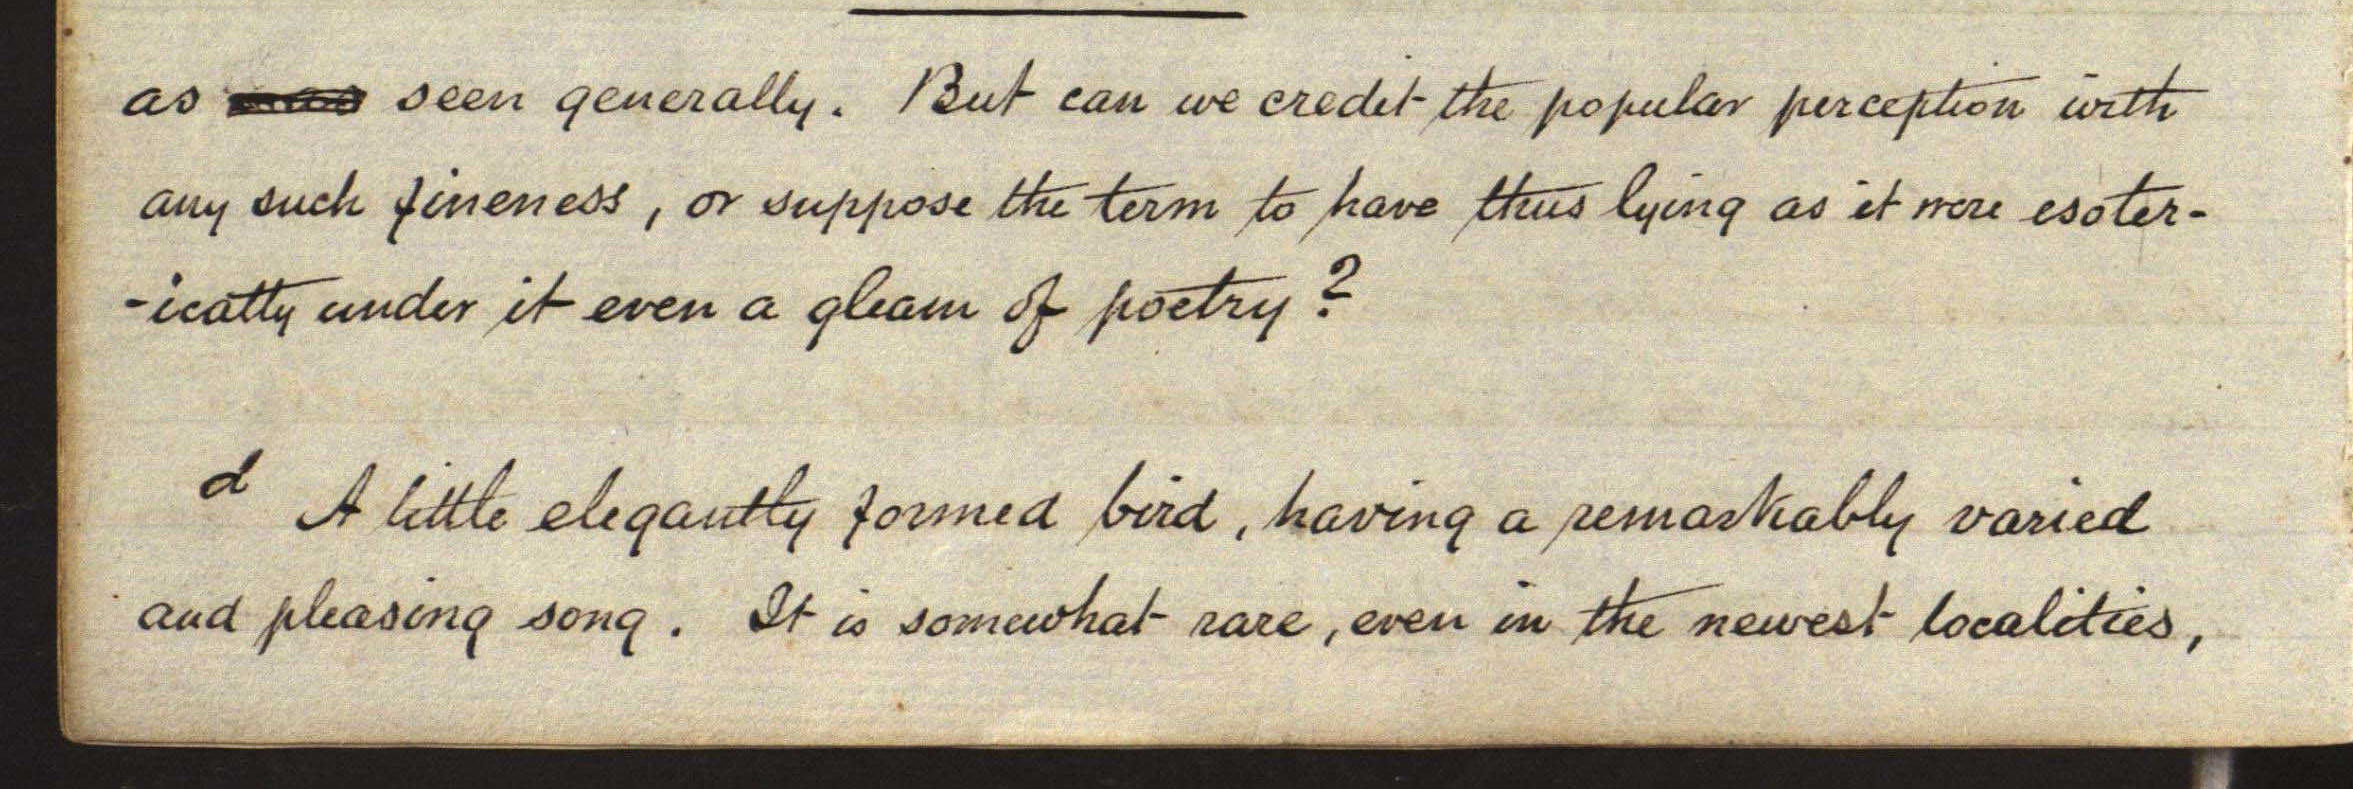 as seen generally. But can we credit the popular perception with
any such fineness, or suppose the term to have thus lying as it were esoter-
-ically under it even a gleam of poetry?
d A little elegantly formed bird, having a remarkably varied
and pleasing song. It is somewhat rare, even in the newest localities,